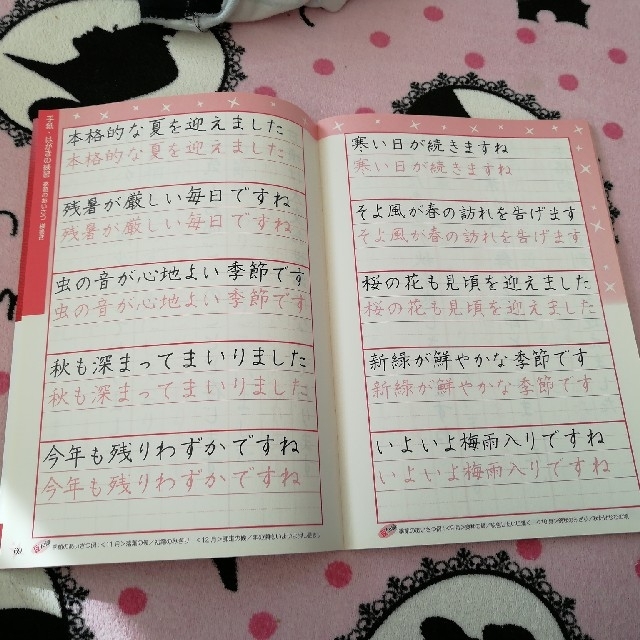 本格的な夏を迎えました
本格的な夏を迎えました
残暑が厳しい毎日ですね
残暑が厳しい毎日ですね
虫の音が心地よい季節です
虫の音が心地よい季節です
秋も深まってまいりました
秋も深まってまいりました
今年も残りわずかですね
今年も残りわずかですね
寒い日が続きますね
寒い日が続きますね
そよ風が春の訪れを告げます
そよ風が春の訪れを告げます
桜の花も見頃を迎えました
桜の花も見頃を迎えました
新緑が鮮やかな季節です
新緑が鮮やかな季節です
いよいよ梅雨入りですね
いよいよ梅雨入りですね